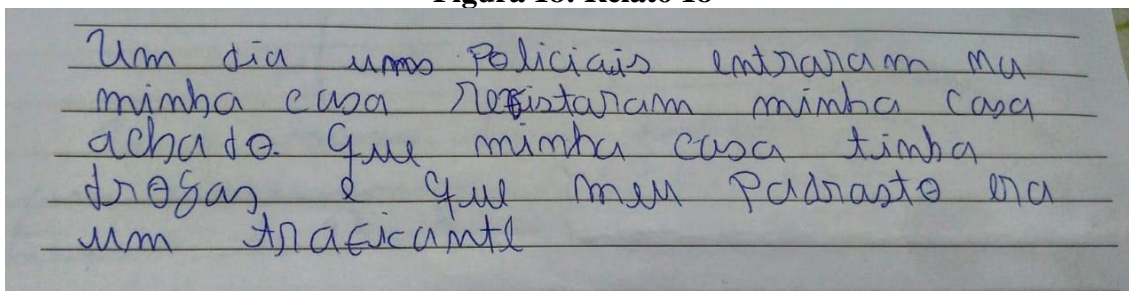 Figura 18: Relato 18
Um dia umas Policiais entraram na
minha casa Refistaram minha casa
achado. que minha casa tinha
drogas e que meu Padrasto era
um traficante